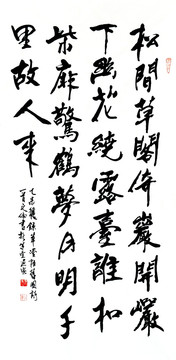 松間草閣倚巖開巖
下幽花繞露臺誰扣
柴扉驚鶴夢月明千
里故人來